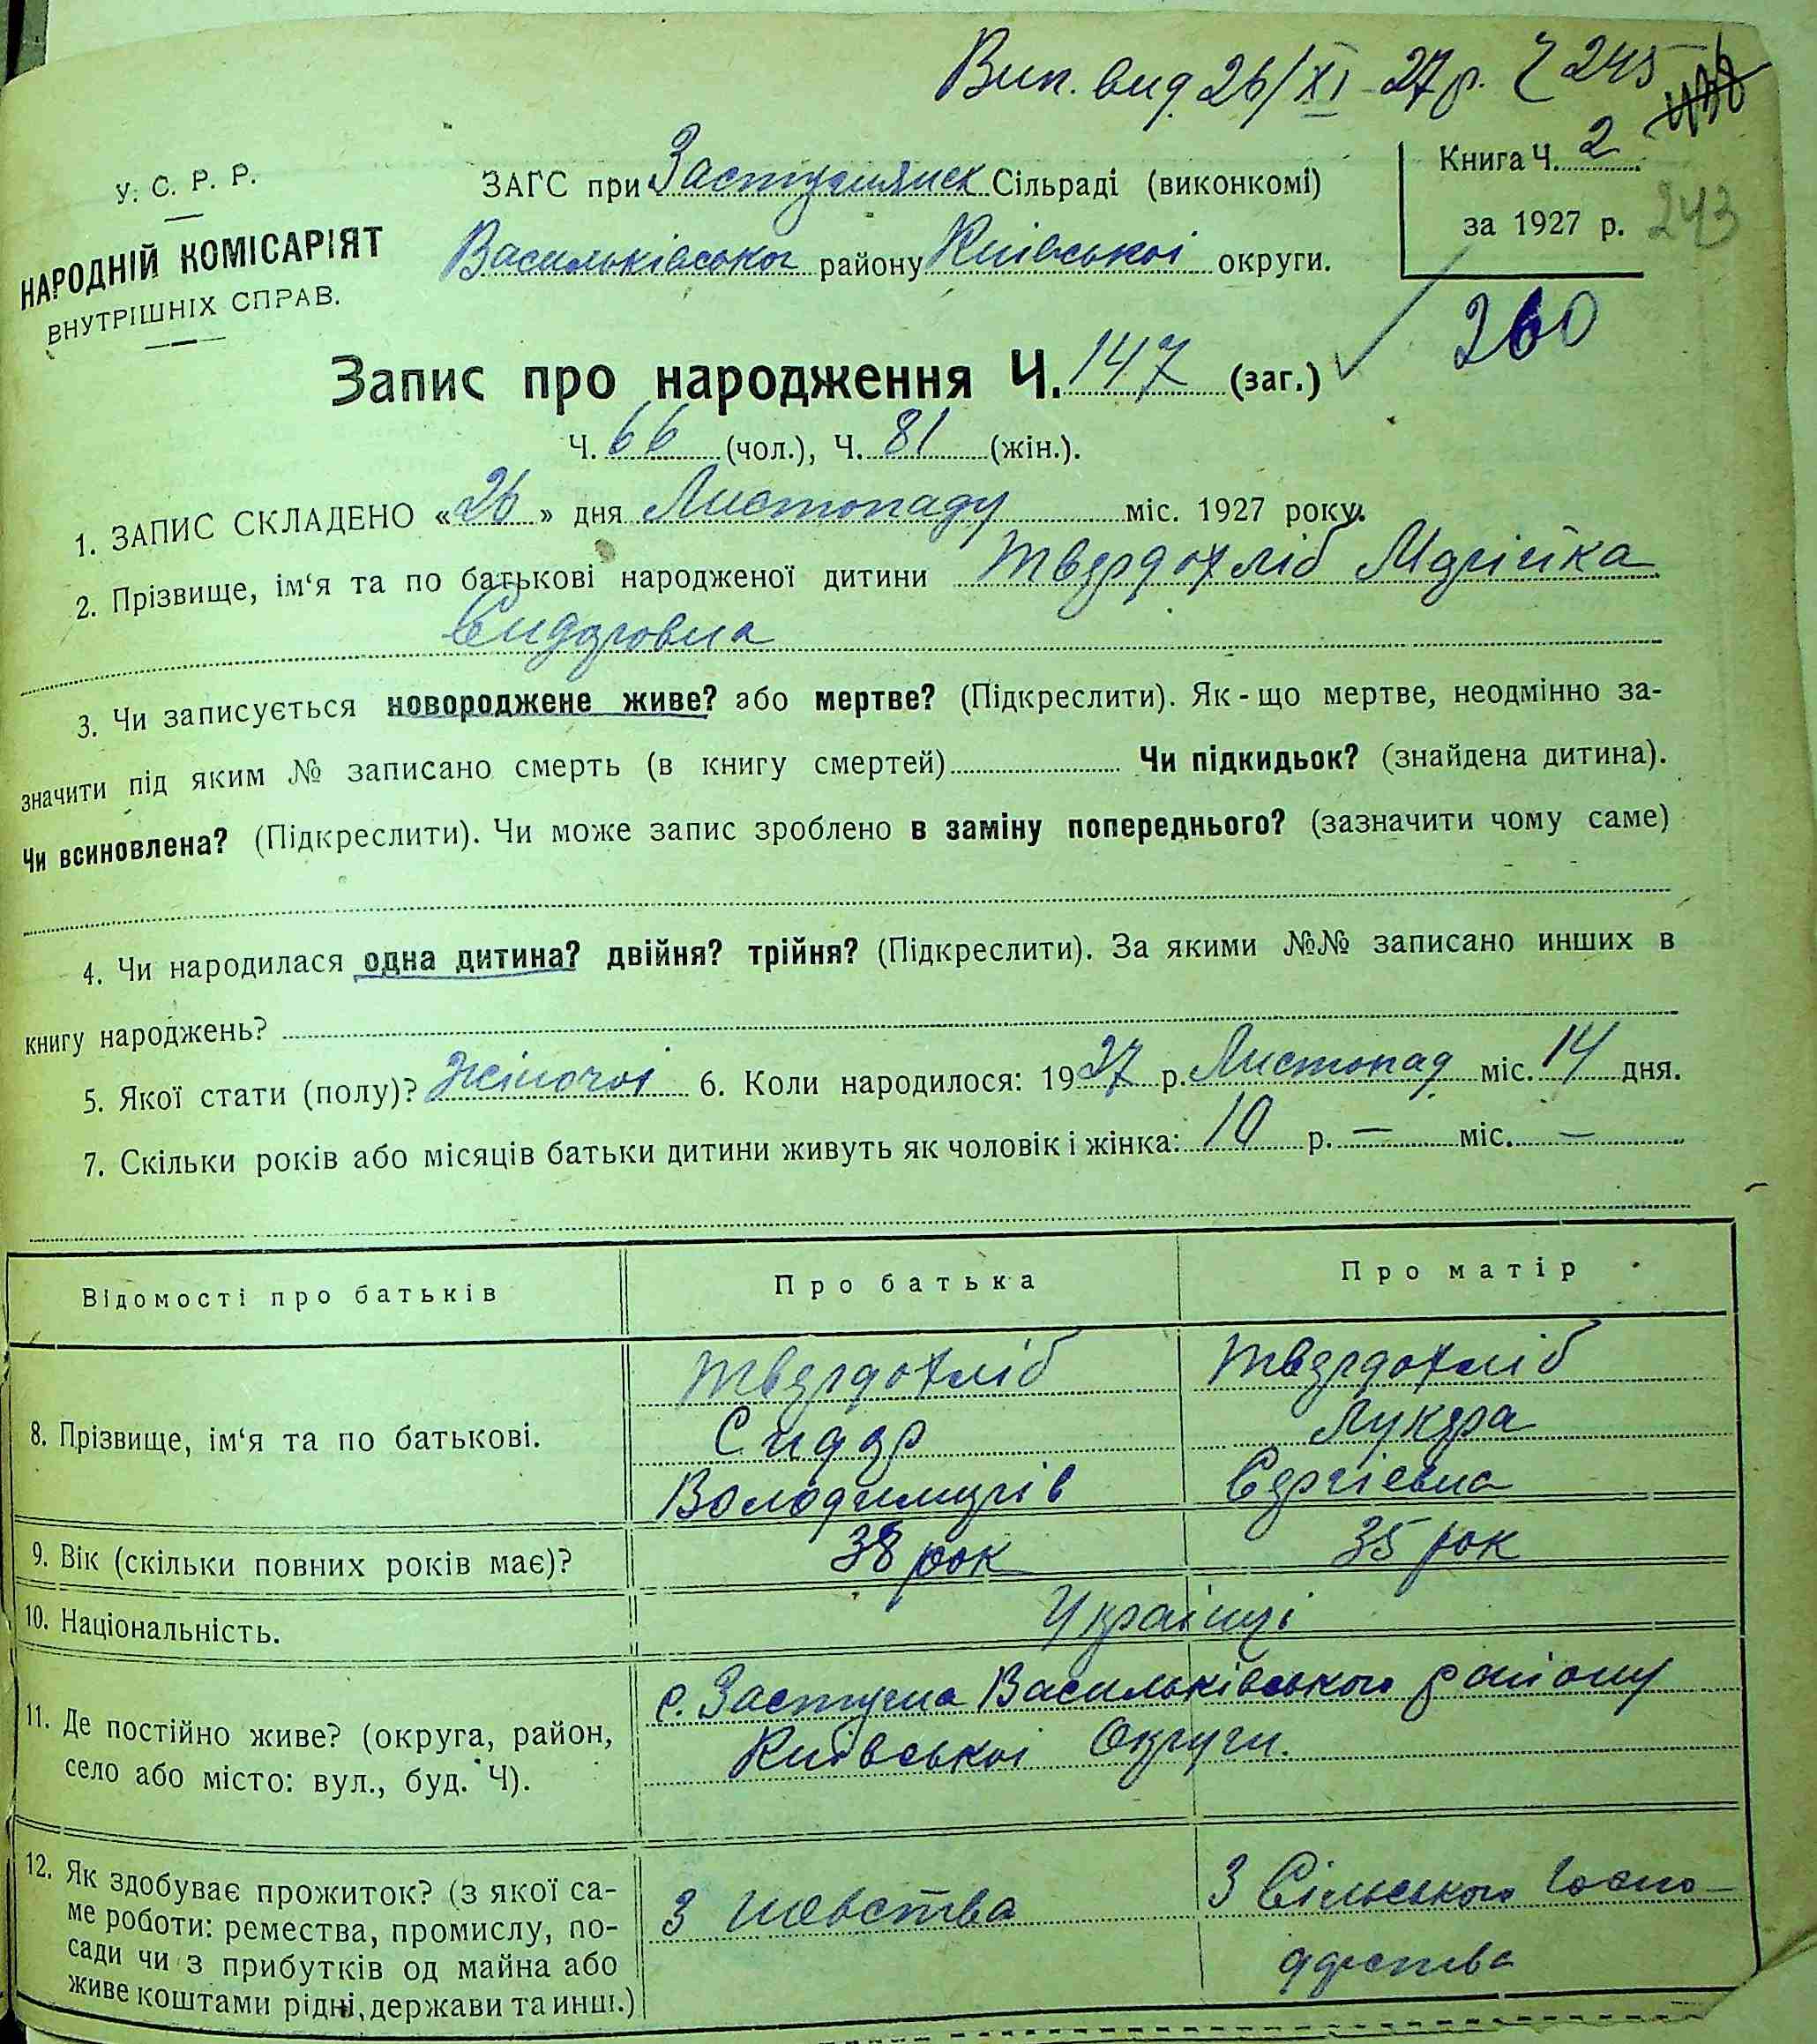 Вип. вид. 26/XI 27 р. Ч 245
У. С. Р. Р.
НАРОДНІЙ КОМІСАРІЯТ
ВНУТРІШНІХ СПРАВ.
ЗАГС при Застугнянск Сільраді (виконкомі)
Васильківського району Київської округи.
Книга Ч. 2
за 1927 р.
243
260
Запис про народження Ч. 147 (заг.)
Ч. 66 (чол.), Ч. 81 (жін.).
1. ЗАПИС СКЛАДЕНО «26» дня Листопаду міс. 1927 року.
2. Прізвище, ім‘я та по батькові народженої дитини Твердохліб Марійка
Сидоровна
3. Чи записується новороджене живе? або мертве? (Підкреслити). Як - що мертве, неодмінно за-
значити під яким № записано смерть (в книгу смертей) Чи підкидьок? (знайдена дитина).
Чи всиновлена? (Підкреслити). Чи може запис зроблено в заміну попереднього? (зазначити чому саме)
4. Чи народилася одна дитина? двійня? трійня? (Підкреслити). За якими №№ записано инших в
книгу народжень?
5. Якої стати (полу)? Жіночої 6. Коли народилося: 1927 р. Листопад міс. 14 дня.
7. Скільки років або місяців батьки дитини живуть як чоловік і жінка: 10 р. — міс. —
Відомості про батьків Про батька Про матір
8. Прізвище, ім‘я та по батькові.
Твердохліб Твердохліб
Сидор Лукера
Володимирів Сергієвна
9. Вік (скільки повних років має)? 38 рок 35 рок
10. Національність. Українці
11. Де постійно живе? (округа, район,
село або місто: вул., буд. Ч).
с. Застугна Васильківського району
Київської Округи.
12. Як здобуває прожиток? (з якої са-
ме роботи: ремества, промислу, по-
сади чи з прибутків од майна або
живе коштами рідні, держави та инш.)
З шевства З Сільського Госпо-
дарства